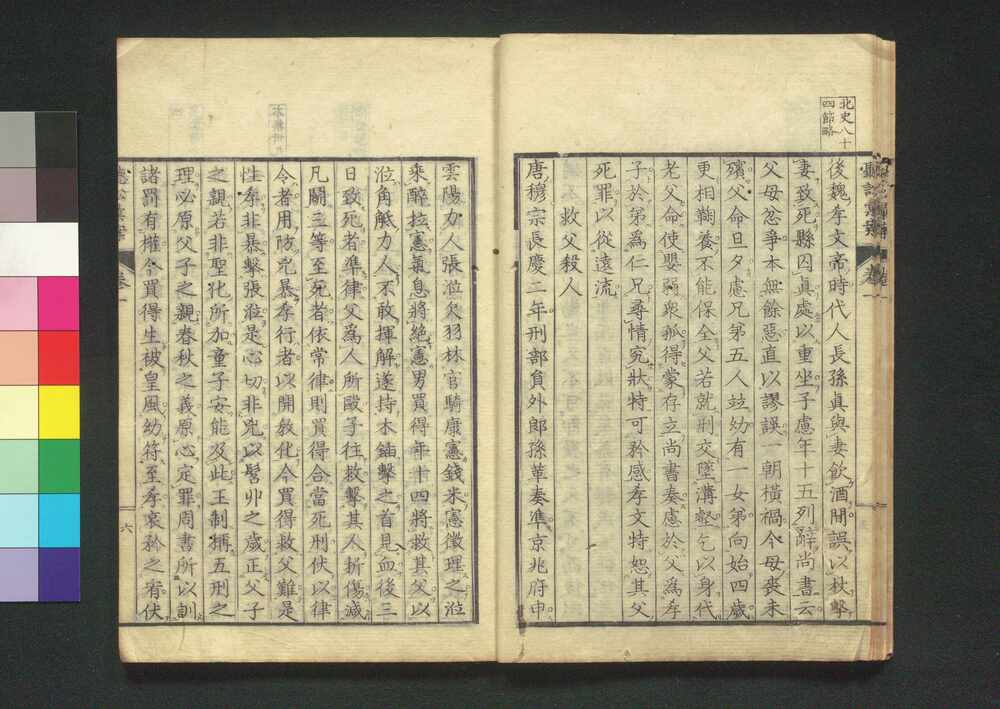 北史八十
四節略
後魏孝文帝時代人長孫眞與妻飲酒間誤以杖擊
妻致死縣囚眞處以重坐子慮年十五列辭尚書云
父母忿爭本無餘惡直以謬誤一朝橫禍今母喪未
殯父命旦夕慮兄弟五人竝幼有一女弟向始四歲
更相鞠養不能保全父若就刑交墜溝壑乞以身代
老父命使嬰弱衆孤得蒙存立尚書奏慮於父爲孝
子於弟爲仁兄尋情究狀特可矜感孝文特恕其父
死罪以從遠流
救父殺人
唐穆宗長慶二年刑部員外郎孫革奏準京兆府申
雲陽力人張涖欠羽林官騎康憲錢米憲徵理之涖
乘醉拉憲氣息將絕憲男買得年十四將救其父以
涖角觝力人不敢揮解遂持木鍤擊之首見血後三
日致死者準律父爲人所毆子往救擊其人折傷減
凡鬭三等至死者依常律則買得合當死刑伏以律
令者用防兇暴孝行者以開敎化今買得救父難是
性孝非暴擊張涖是心切非兇以髫丱之歲正父子
之親若非聖化所加童子安能及此王制稱五刑之
理必原父子之親春秋之義原心定罪周書所以訓
諸罰有權今買得生被皇風幼符至孝哀矜之宥伏
卷一
六